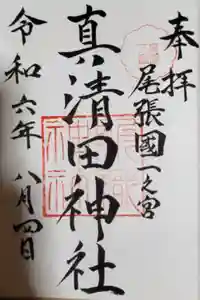 奉拝
尾張國一之宮
真清田神社
令和六年八月四日